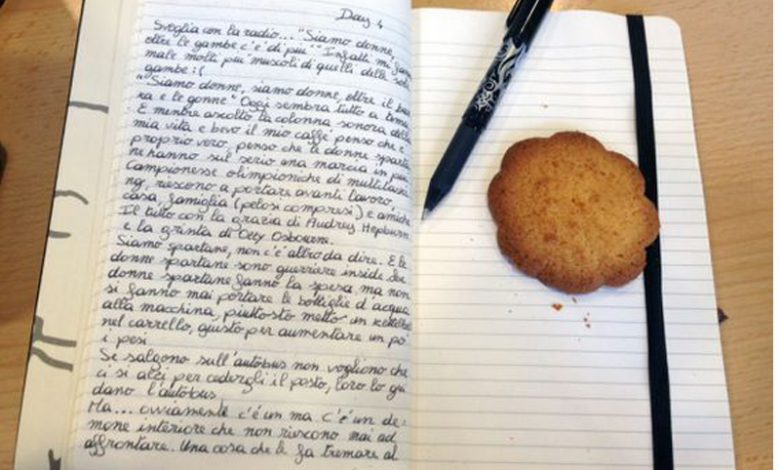 Day 4
Sveglia con la radio... "Siamo donne,
oltre le gambe c'è di più" Infatti mi fanno
male molti più muscoli di quelli delle sole
gambe :(
"Siamo donne, siamo donne, oltre il bu
ra e le gonne" Oggi sembra tutto a tema
E mentre ascolto la colonna sonora della
mia vita e bevo il mio caffè penso che è
proprio vero, penso che le donne sparta
ne hanno sul serio una marcia in più.
Campionesse olimpioniche di multitaski
ng, riescono a portare avanti lavoro,
casa, famiglia (pelosi compresi) e amiche
Il tutto con la grazia di Audrey Hepburn
e la grinta di Ozzy Osbourn.
Siamo spartane, non c'è altro da dire. E le
donne spartane sono guerriere inside. Le
donne spartane fanno la spesa ma non
si fanno mai portare le bottiglie d'acqua
alla macchina, piuttosto metto un kettlebel
nel carrello, giusto per aumentare un po'
i pesi
Se salgono sull'autobus non vogliono che
ci si alzi per cedergli il posto, loro lo gui
dano l'autobus
Ma... ovviamente c'è un ma c'è un de-
mone interiore che non riescono mai ad
affrontare. Una cosa che le fa tremare al